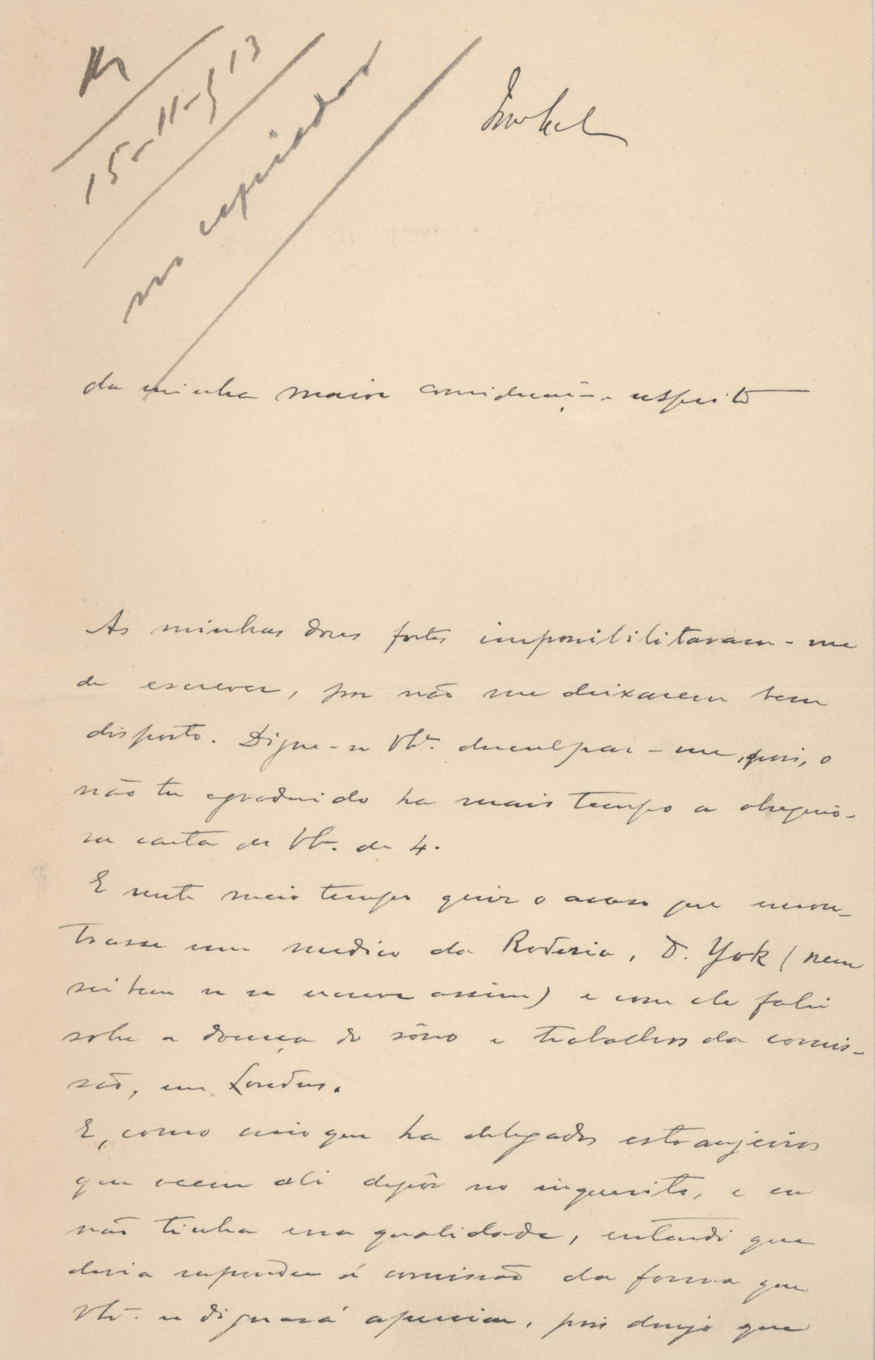 15-11-913
da minha maior consideração e respeito
As minhas dores fortes impossibilitaram-me
de escrever, por não me deixarem bem
disposto. Digne-se V Ex.ª desculpar-me, pois, o
não ter agradecido ha mais tempo a obsequio-
sa carta de V Ex.ª de 4.
E neste meio tempo quiz o acaso que encon-
trasse um medico da Rodesia, D. York (nem
sei bem se se escreve assim) e com ele falei
sobre a doença do sôno e trabalhos da comis-
são, em Londres.
E, como creio que ha delegados estranjeiros
que veem ali depôr no inquerito, e eu
não tinha essa qualidade, entendi que
devia responder á comissão da forma que
V Ex.ª se dignará apreciar, pois desejo que